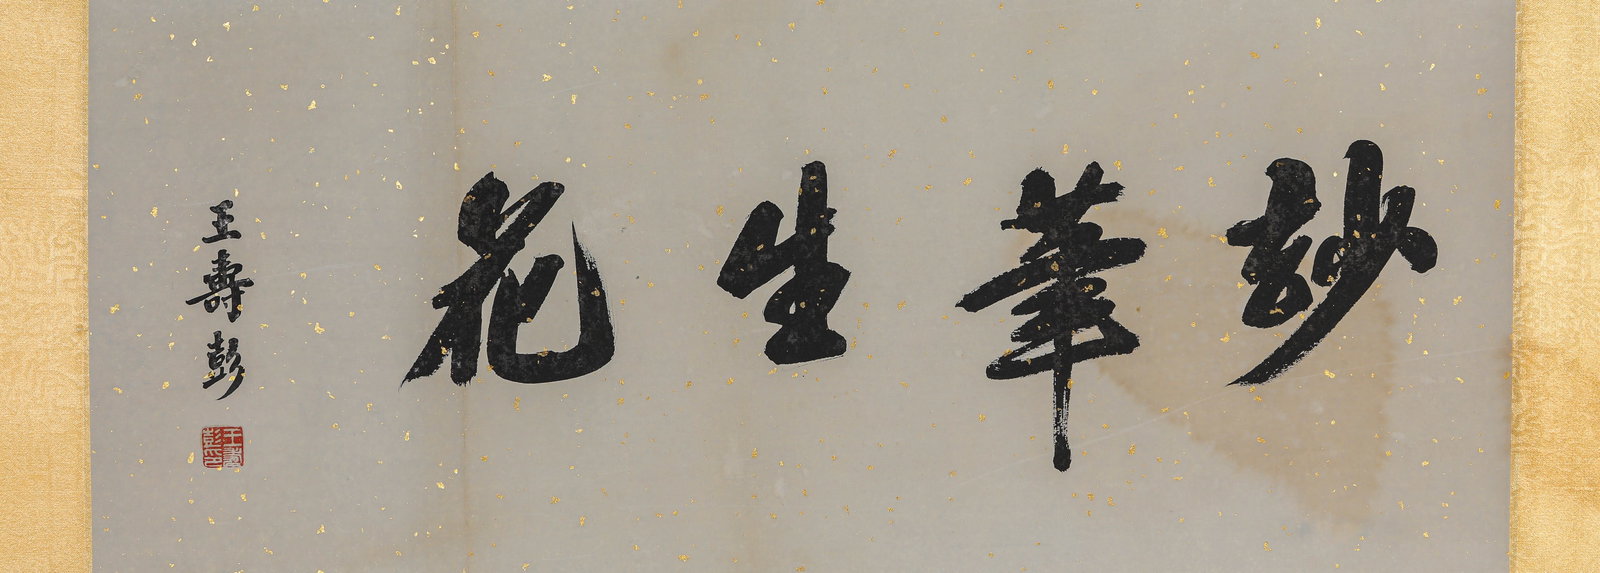 妙筆生花
王壽彭
王壽彭印